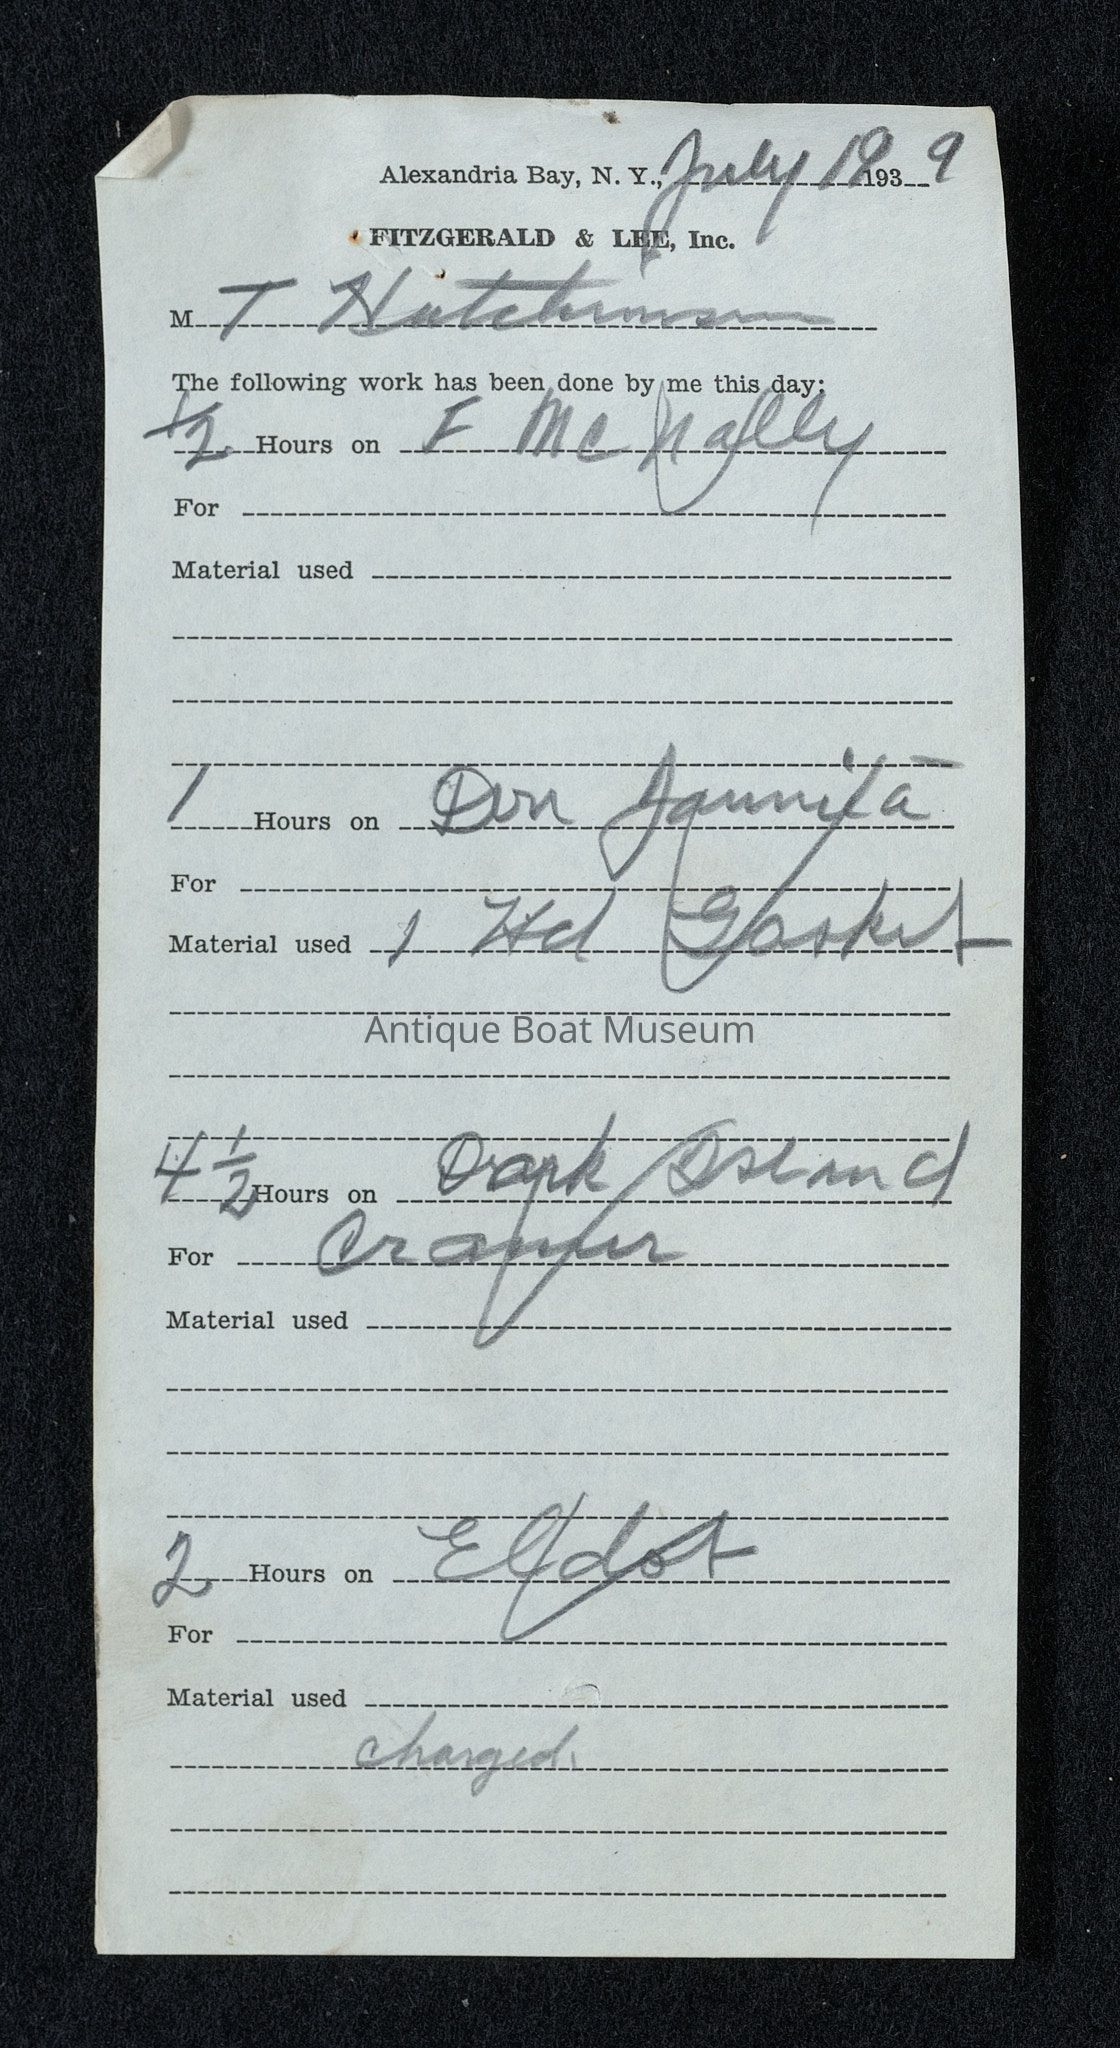 Alexandria Bay, N. Y., July 18 1939
FITZGERALD & LEE, Inc.
M T Hutchinson
The following work has been done by me this day:
1/2 Hours on F McNally
For
Material used
1 Hours on Don Jaunita
For
Material used 1 Hd Gasket
Antique Boat Museum
4 1/2 Hours on Dark Island
For Cramer
Material used
2 Hours on Eldot
For
Material used
charged.